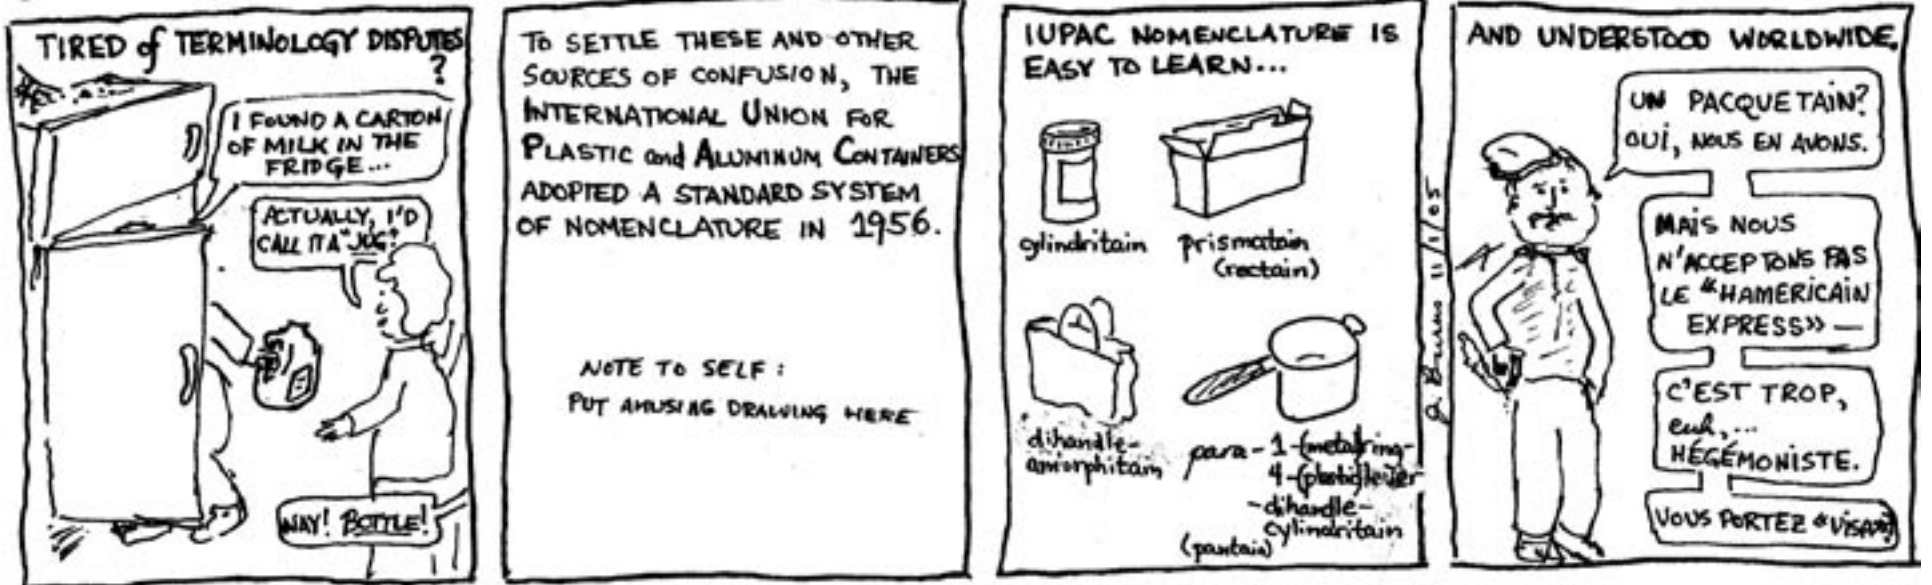 TIRED of TERMINOLOGY DISPUTES
?
I FOUND A CARTON
OF MILK IN THE
FRIDGE...
ACTUALLY, I'D
CALL IT A "JUG".
NAY! BOTTLE!
TO SETTLE THESE AND OTHER
SOURCES OF CONFUSION, THE
INTERNATIONAL UNION FOR
PLASTIC and ALUMINUM CONTAINERS
ADOPTED A STANDARD SYSTEM
OF NOMENCLATURE IN 1956.
NOTE TO SELF:
PUT AMUSING DRAWING HERE
IUPAC NOMENCLATURE IS
EASY TO LEARN...
cylindritain
prismatain
(rectain)
dihandle-
amorphitain
para-1-(metal)ring-
4-(plastic)lever
-dihandle-
cylindritain
(pantain)
11/1/05
AND UNDERSTOOD WORLDWIDE.
UN PACQUETAIN?
OUI, NOUS EN AVONS.
MAIS NOUS
N'ACCEPTONS PAS
LE "HAMERICAIN
EXPRESS» —
C'EST TROP,
euh,...
HÉGÉMONISTE.
VOUS PORTEZ